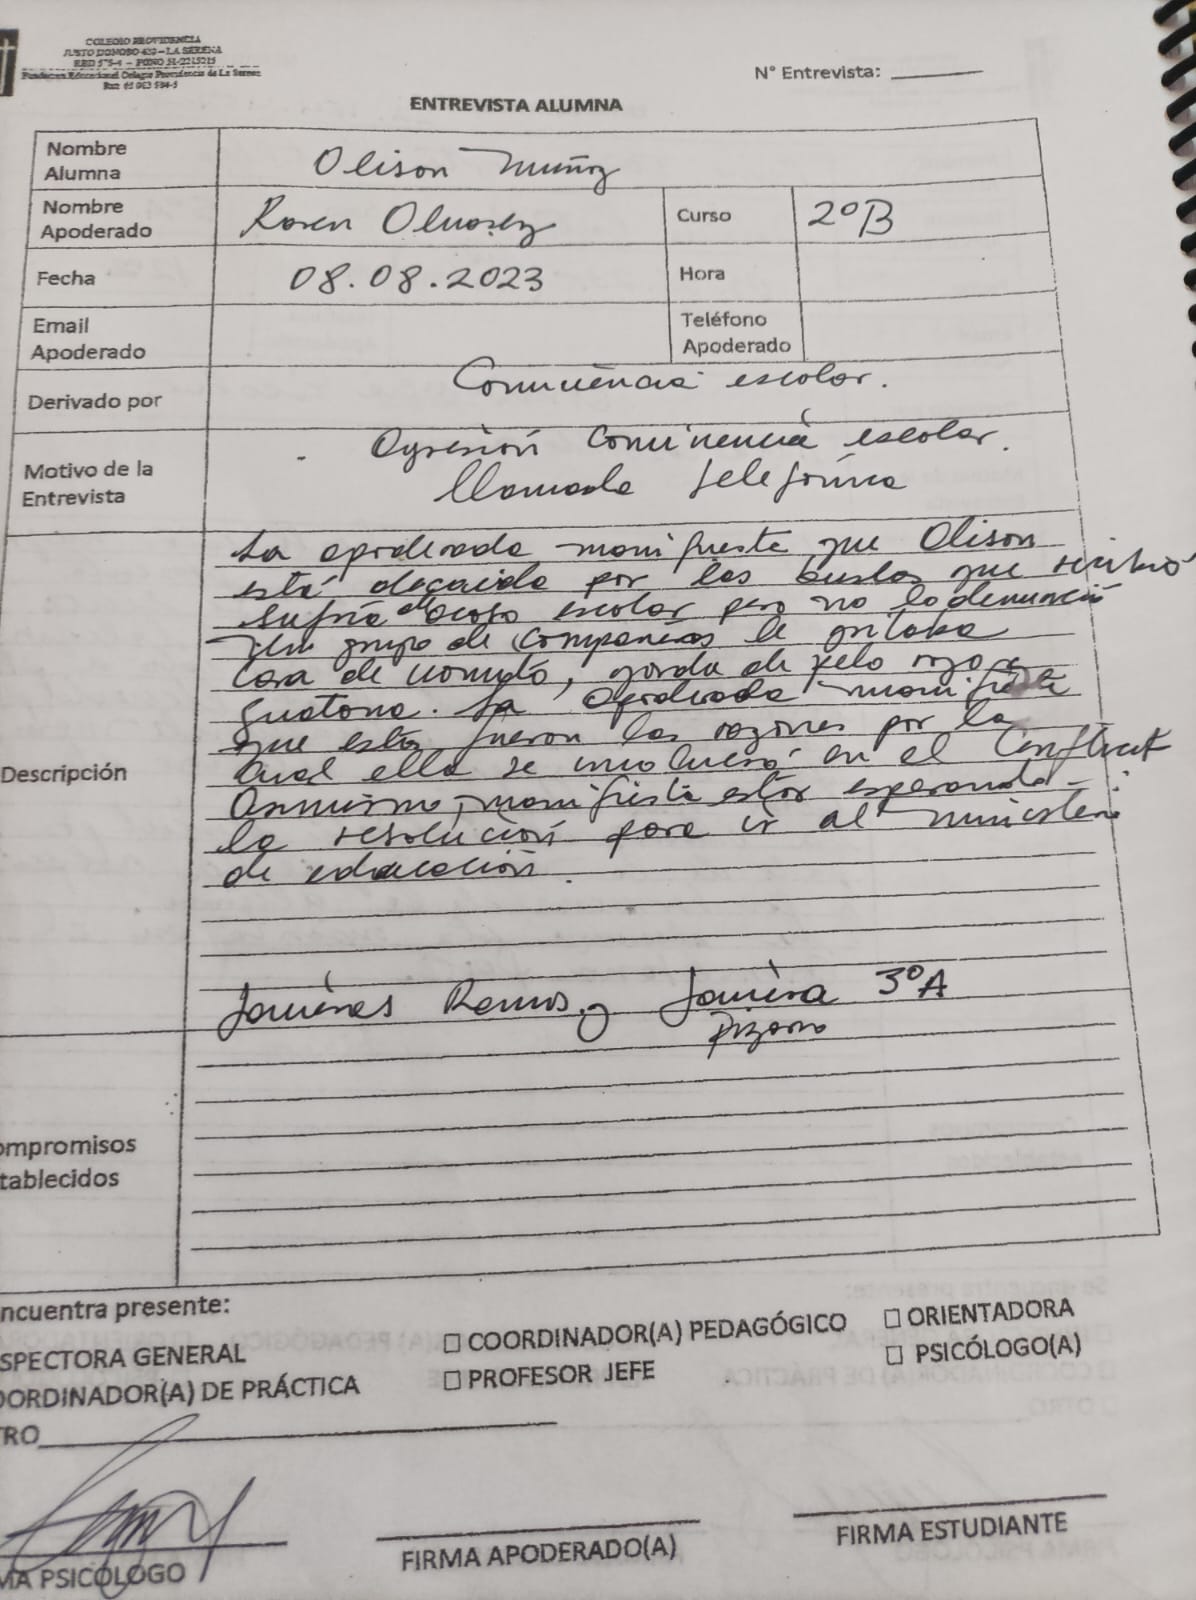 COLEGIO PROVIDENCIA
JUSTO DONOSO 420 – LA SERENA
RBD 575-4 – FONO 51-2215215
Fundacion Educacional Colegio Providencia de La Serena
Nº Entrevista:
ENTREVISTA ALUMNA
Nombre Alumna
Olison Muñoz
Nombre Apoderado
Karen Olvarez
Curso
2ºB
Fecha
08.08.2023
Hora
Email Apoderado
Teléfono Apoderado
Derivado por
Convivencia escolar.
Motivo de la Entrevista
- Agresión Convivencia escolar.
llamada telefónica
Descripción
La apoderada manifieste que Olison
está decaida por las burlas que recibió
sufría de acoso escolar pero no lo denunció
Un grupo de compañeras le gritaba
cara de , gorda de pelo rojo
guatona. La apoderada manifiesta
que estas fueron las razones por la
cual ella se involucró en el Conflicto
Asimismo, manifiesta estar esperando
la resolución para ir al ministerio
de educación.
Javieras Ramos y Javiera 3ºA
Pizarro
ompromisos
tablecidos
ncuentra presente:
SPECTORA GENERAL
☐ COORDINADOR(A) PEDAGÓGICO
☐ ORIENTADORA
OORDINADOR(A) DE PRÁCTICA
☐ PROFESOR JEFE
☐ PSICÓLOGO(A)
TRO
MA PSICÓLOGO
FIRMA APODERADO(A)
FIRMA ESTUDIANTE